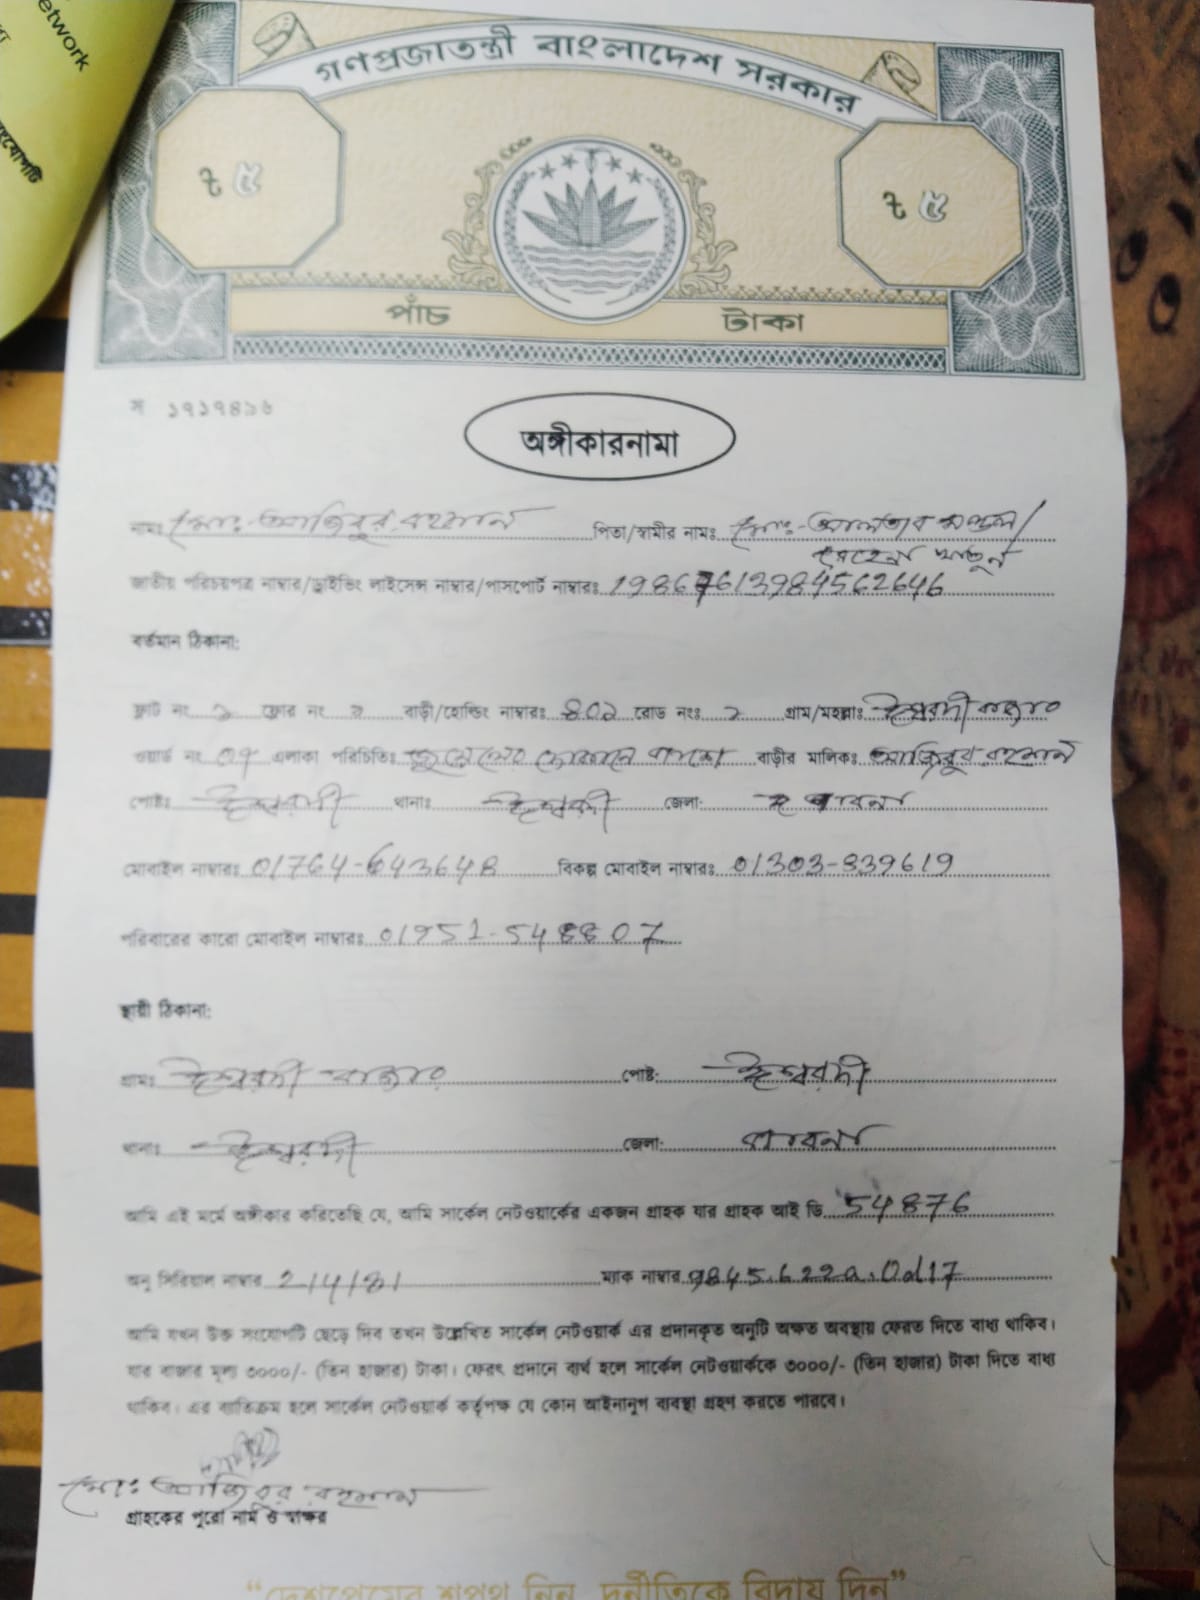 etwork
গণপ্রজাতন্ত্রী বাংলাদেশ সরকার
৳ ৫
৳ ৫
পাঁচ টাকা
স ১৭১৭৪১৬
অঙ্গীকারনামা
নামঃ মোঃ আজিবুর রহমান পিতা/স্বামীর নামঃ মোঃ- আলতাব মণ্ডল/
খাতুন
জাতীয় পরিচয়পত্র নাম্বার/ড্রাইভিং লাইসেন্স নাম্বার/পাসপোর্ট নাম্বারঃ 19867613984562646
বর্তমান ঠিকানা:
ফ্লাট নং ১ ফ্লোর নং ২ বাড়ী/হোল্ডিং নাম্বারঃ ৪০১ রোড নংঃ ১ গ্রাম/মহল্লাঃ ঈশ্বরদী বাজার
ওয়ার্ড নং 07 এলাকা পরিচিতিঃ বাড়ীর মালিকঃ আজিবুর রহমান
পোষ্টঃ ঈশ্বরদী থানাঃ ঈশ্বরদী জেলা: পাবনা
মোবাইল নাম্বারঃ 01764-643648 বিকল্প মোবাইল নাম্বারঃ 01303-839619
পরিবারের কারো মোবাইল নাম্বারঃ 01951-548807
স্থায়ী ঠিকানা:
গ্রামঃ ঈশ্বরদী বাজার পোষ্ট: ঈশ্বরদী
থানাঃ ঈশ্বরদী জেলা: পাবনা
আমি এই মর্মে অঙ্গীকার করিতেছি যে, আমি সার্কেল নেটওয়ার্কের একজন গ্রাহক যার গ্রাহক আই ডি 54876
অনু সিরিয়াল নাম্বার 2/4/31 ম্যাক নাম্বার 9845.622a.0d17
আমি যখন উক্ত সংযোগটি ছেড়ে দিব তখন উল্লেখিত সার্কেল নেটওয়ার্ক এর প্রদানকৃত অনুটি অক্ষত অবস্থায় ফেরত দিতে বাধ্য থাকিব।
যার বাজার মূল্য ৩০০০/- (তিন হাজার) টাকা। ফেরৎ প্রদানে ব্যর্থ হলে সার্কেল নেটওয়ার্ককে ৩০০০/- (তিন হাজার) টাকা দিতে বাধ্য
থাকিব। এর ব্যতিক্রম হলে সার্কেল নেটওয়ার্ক কর্তৃপক্ষ যে কোন আইনানুগ ব্যবস্থা গ্রহণ করতে পারবে।
মোঃ আজিবুর রহমান
গ্রাহকের পুরো নাম ও স্বাক্ষর
"দেশপ্রেমের শপথ নিন, দুর্নীতিকে বিদায় দিন"